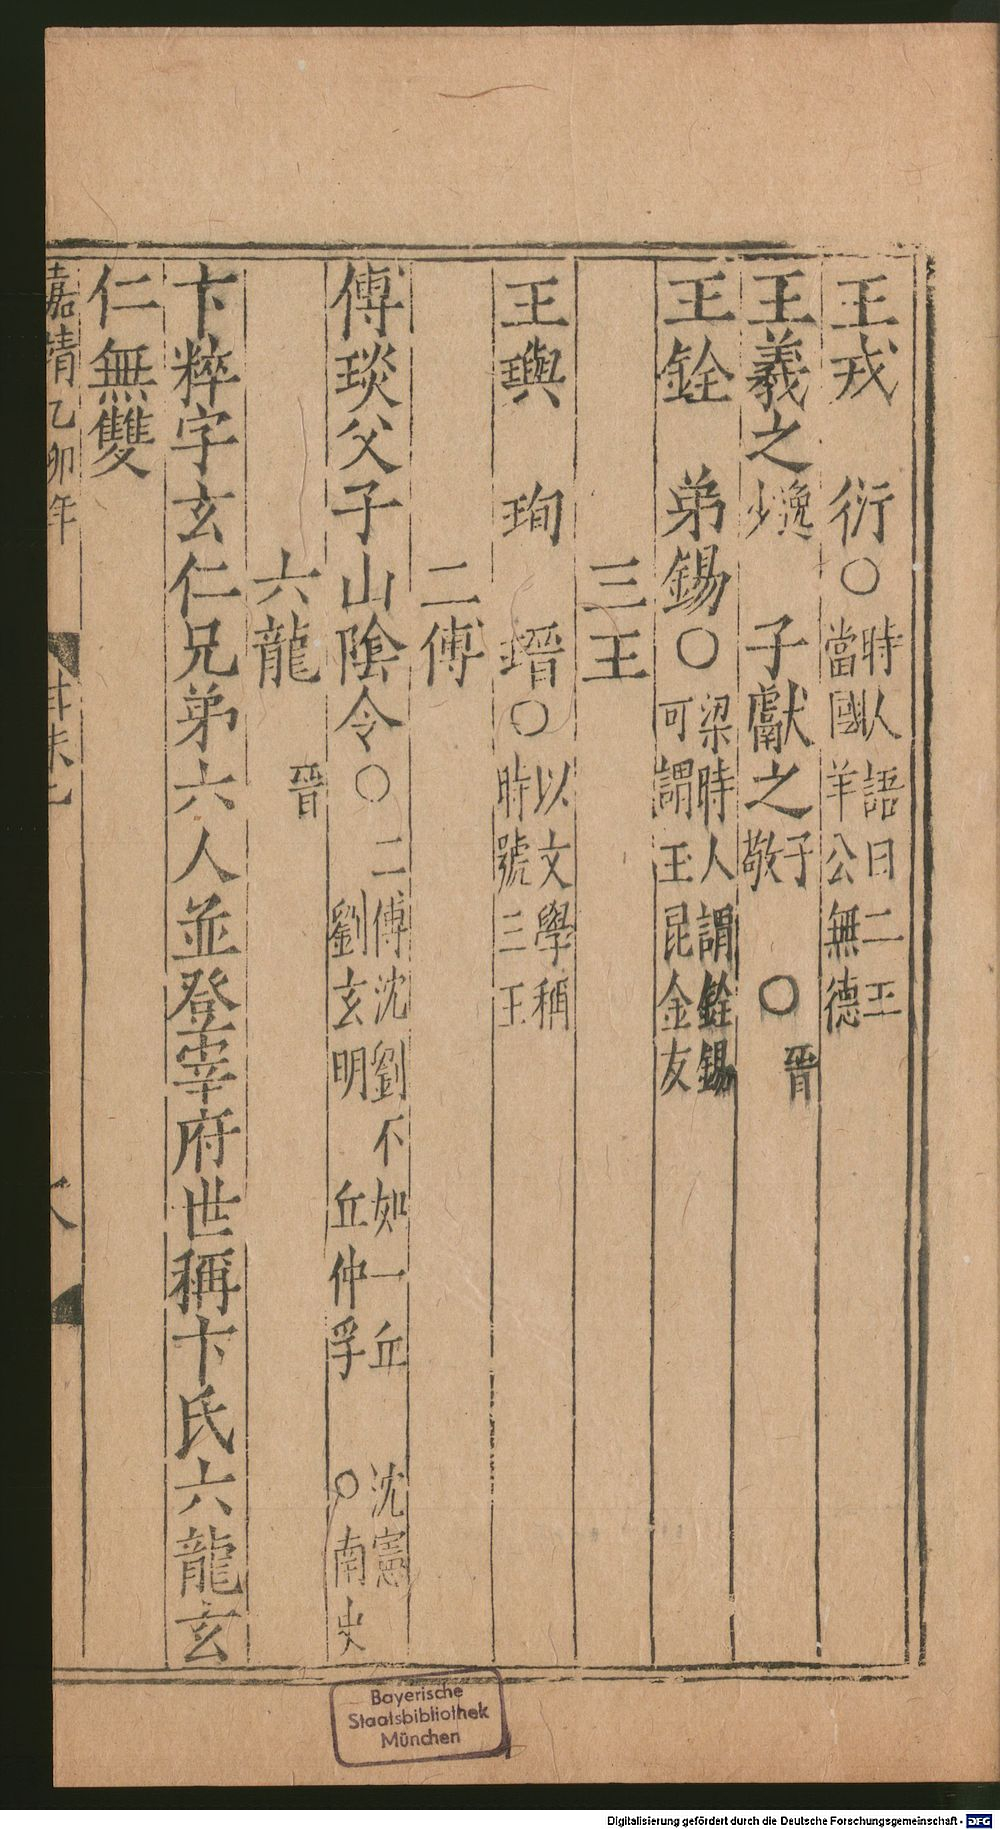 王戎 衍○時人語曰二王當國羊公無德
王羲之逸少 子獻之子敬 ○晉
王銓 弟錫○梁時人謂銓錫可謂玉昆金友
三王
王璵 珣 瑨○以文學稱時號三王
二傅
傅琰父子山陰令○二傅沈劉不如一丘 沈憲劉玄明 丘仲孚 ○南史
六龍 晉
卞粹字玄仁兄弟六人並登宰府世稱卞氏六龍玄
仁無雙
嘉靖乙卯年
Bayerische
Staatsbibliothek
München
Digitalisierung gefördert durch die Deutsche Forschungsgemeinschaft - DFG